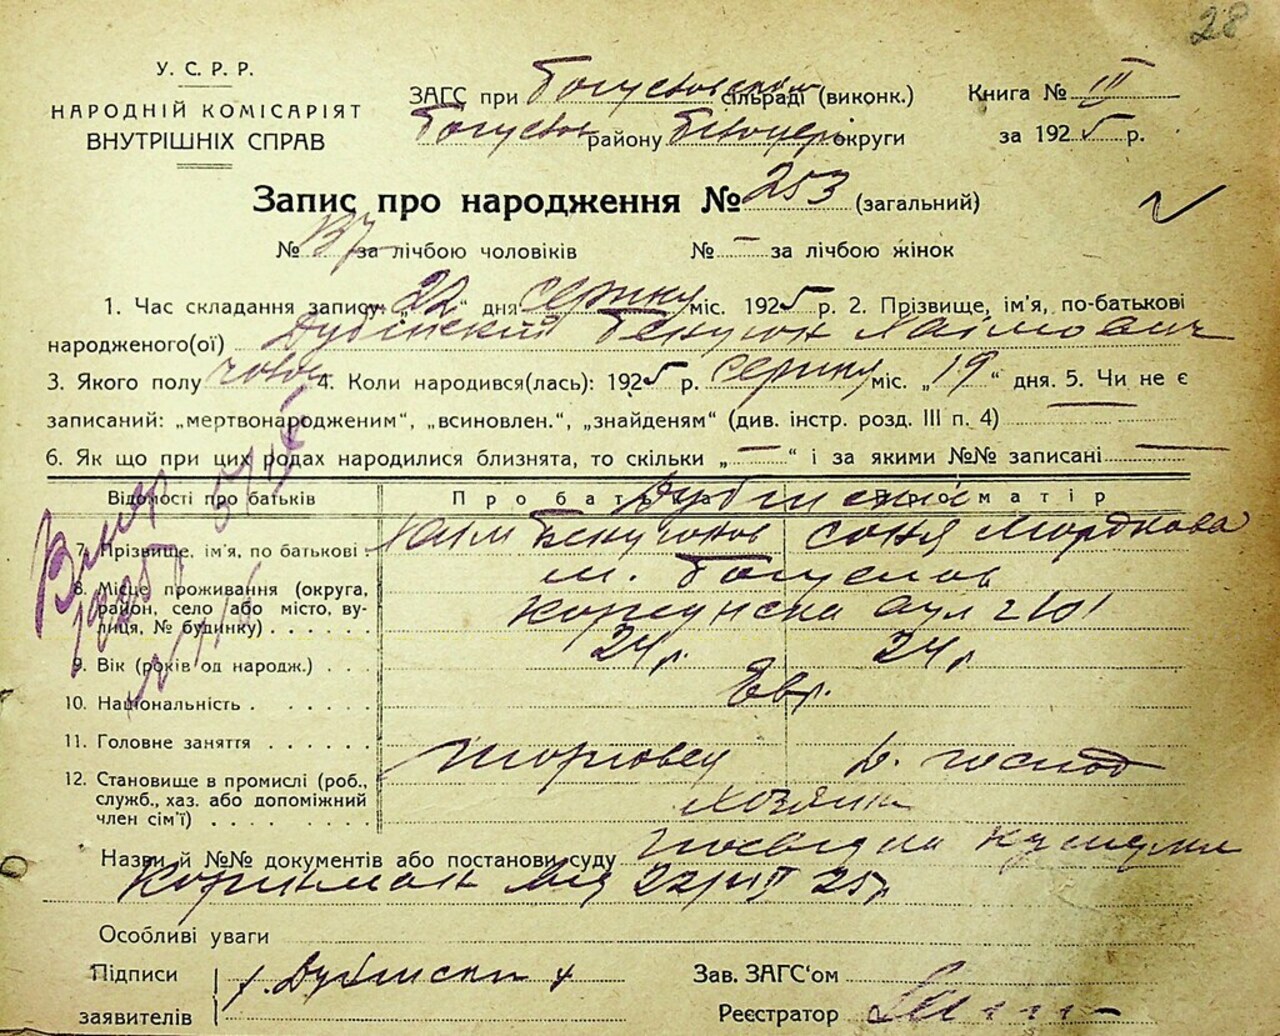 28
У. С. Р. Р.
НАРОДНІЙ КОМІСАРІЯТ
ВНУТРІШНІХ СПРАВ
ЗАГС при Богуславском сільраді (виконк.)
Богуслав району Білоцерк округи
Книга № II
за 1925 р.
Запис про народження № 253 (загальний)
№ 137 за лічбою чоловіків № — за лічбою жінок
1. Час складання запису: „22“ дня серпня міс. 1925 р. 2. Прізвище, ім'я, по-батькові
народженого(ої) Дубінский Бенцион Хаімович
3. Якого полу чолов 4. Коли народився(лась): 1925 р. серпня міс. „19“ дня. 5. Чи не є
записаний: „мертвонародженим“, „всиновлен.“, „знайденям“ (див. інстр. розд. III п. 4) —
6. Як що при цих родах народилися близнята, то скільки „—“ і за якими №№ записані —
Відомості про батьків Про батька Про матір
Дубінский
7. Прізвище, ім'я, по батькові Хаім Бенционов Соня Мордкова
8. Місце проживання (округа, район, село або місто, вулиця, № будинку) м. Богуслав
9. Вік (років од народж.) 24 р. 24 р
10. Національність Евр.
11. Головне заняття торговец д. господ
12. Становище в промислі (роб., служб., хаз. або допоміжний член сім'ї) хозяин
Назви й №№ документів або постанови суду
від 22/VIII 25р
Особливі уваги
Підписи
заявителів
Х. Дубински
Зав. ЗАГС'ом
Реєстратор
Вмер